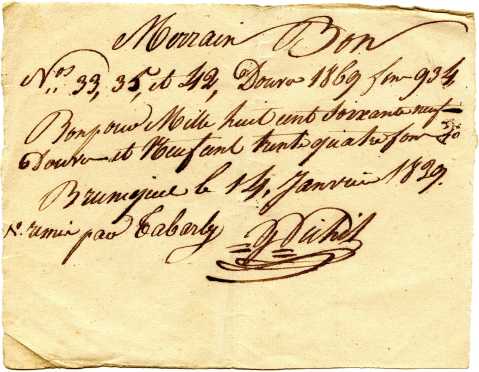 Merrain Bon
Nos 33, 35, et 42, Douve 1869 fon 934
Bon pour Mille huit cent Soixante neuf
Douve et Neuf cent trente quatre fon
Bruniquel le 14, Janvier 1839.
remis par Tabarly